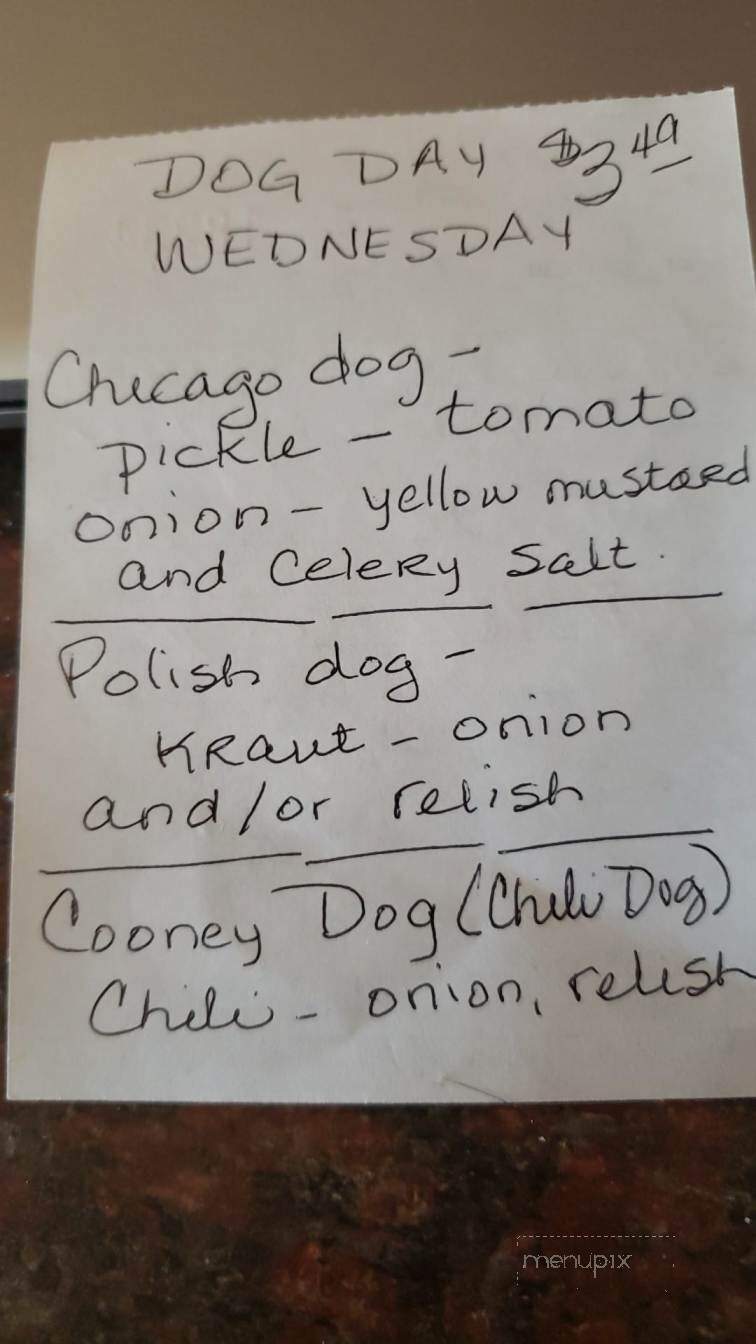 DOG DAY $3.49
WEDNESDAY
Chicago dog -
pickle - tomato
onion - yellow mustard
and Celery Salt.
Polish dog -
KRaut - onion
and/or relish
Cooney Dog (Chili Dog)
Chili - onion, relish
menupix